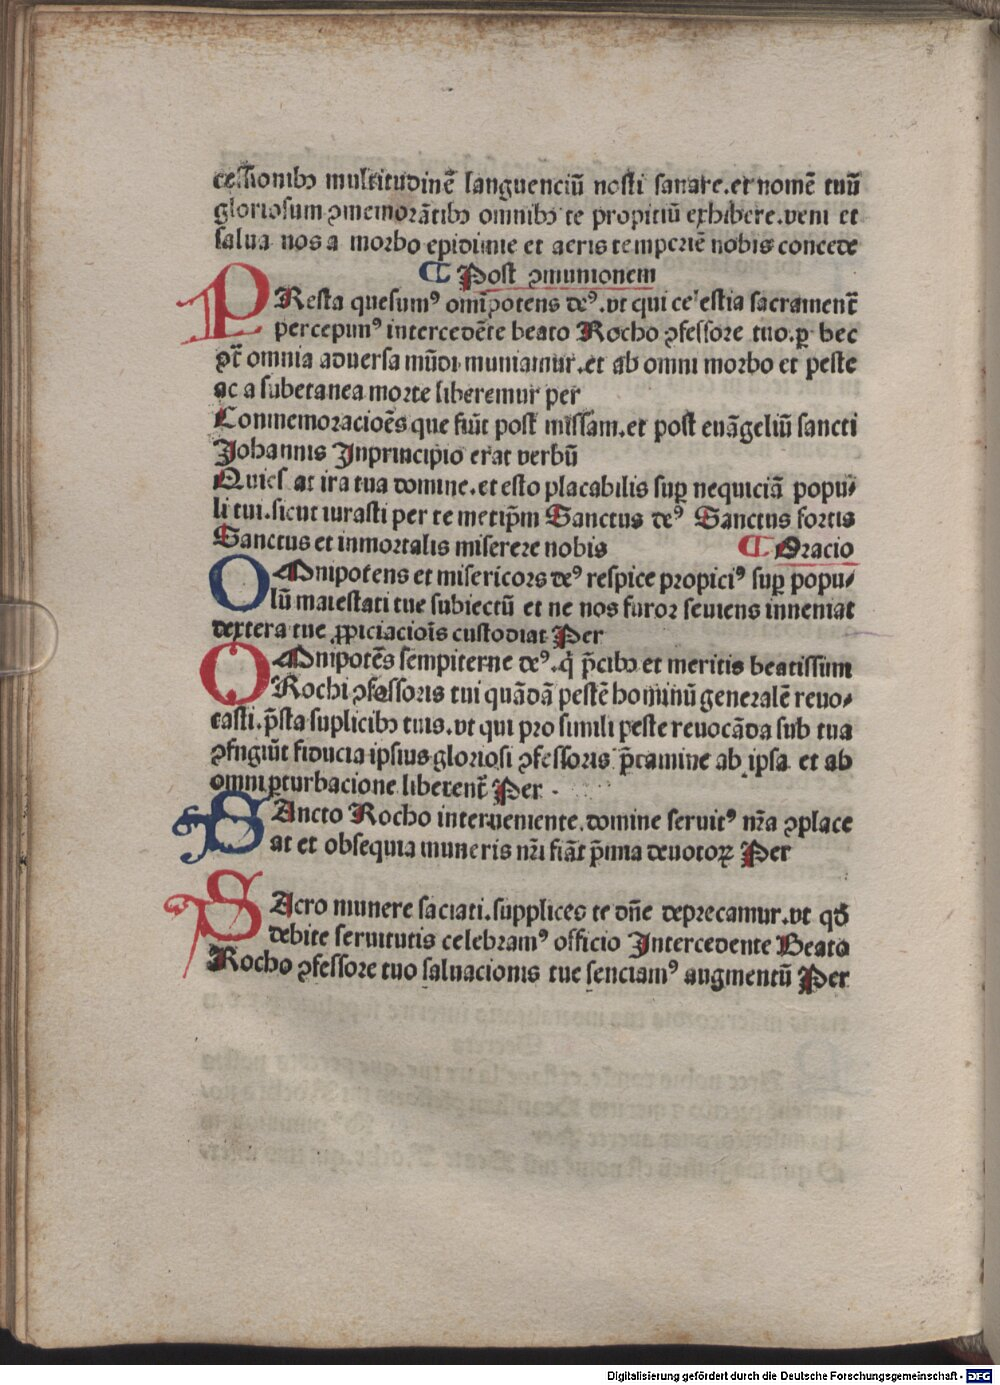 cessionibꝫ multitudinē languenciū nosti sanare.et nomē tuū
gloriosum ꝯmemorātibꝫ omnibꝫ te propitiū exhibere.veni et
salua nos a morbo epidimie et aeris temperiē nobis concede
¶ Post ꝯmunionem
PResta quesumꝰ omīpotens deꝰ.vt qui celestia sacramentꝭ
percepimꝰ intercedēte beato Rocho ꝯfessore tuo.ꝑ hec
ꝯt̄ omnia aduersa mūdi muniamur.et ab omni morbo et peste
ac a subetanea morte liberemur per
Conmemoracioēs que fiūt post missam.et post euāgeliū sancti
Johannis Inprincipio erat verbū
Quiescat ira tua domine.et esto placabilis suꝑ nequiciā popu⸗
li tui.sicut iurasti per te metip̄m Sanctus deꝰ Sanctus fortis
Sanctus et inmortalis miserere nobis ¶ Oracio
OMnipotens et misericors deꝰ respice propiciꝰ suꝑ popu⸗
lū maiestati tue subiectū et ne nos furor seuiens inueniat
dextera tue ꝓpiciacioīs custodiat Per
OMnipotēs sempiterne deꝰ.q̄ p̄cibꝫ et meritis beatissimi
Rochi ꝯfessoris tui quādā pestē hominū generalē reuo⸗
casti.p̄sta suplicibꝫ tuis.vt qui pro simili peste reuocāda sub tua
ꝯfugiūt fiducia ipsius gloriosi ꝯfessoris p̄camine ab ipsa et ab
omni ꝑturbacione liberent̄ Per
SAncto Rocho interueniente.domine seruitꝰ nr̄a ꝯplace
at et obsequia muneris nr̄i fiāt p̄mia deuotoꝝ Per
SAcro munere saciati.supplices te dn̄e deprecamur.vt qd̄
debite seruitutis celebramꝰ officio Intercedente Beato
Rocho ꝯfessore tuo saluacionis tue senciamꝰ augmentū Per
Digitalisierung gefördert durch die Deutsche Forschungsgemeinschaft - DFG